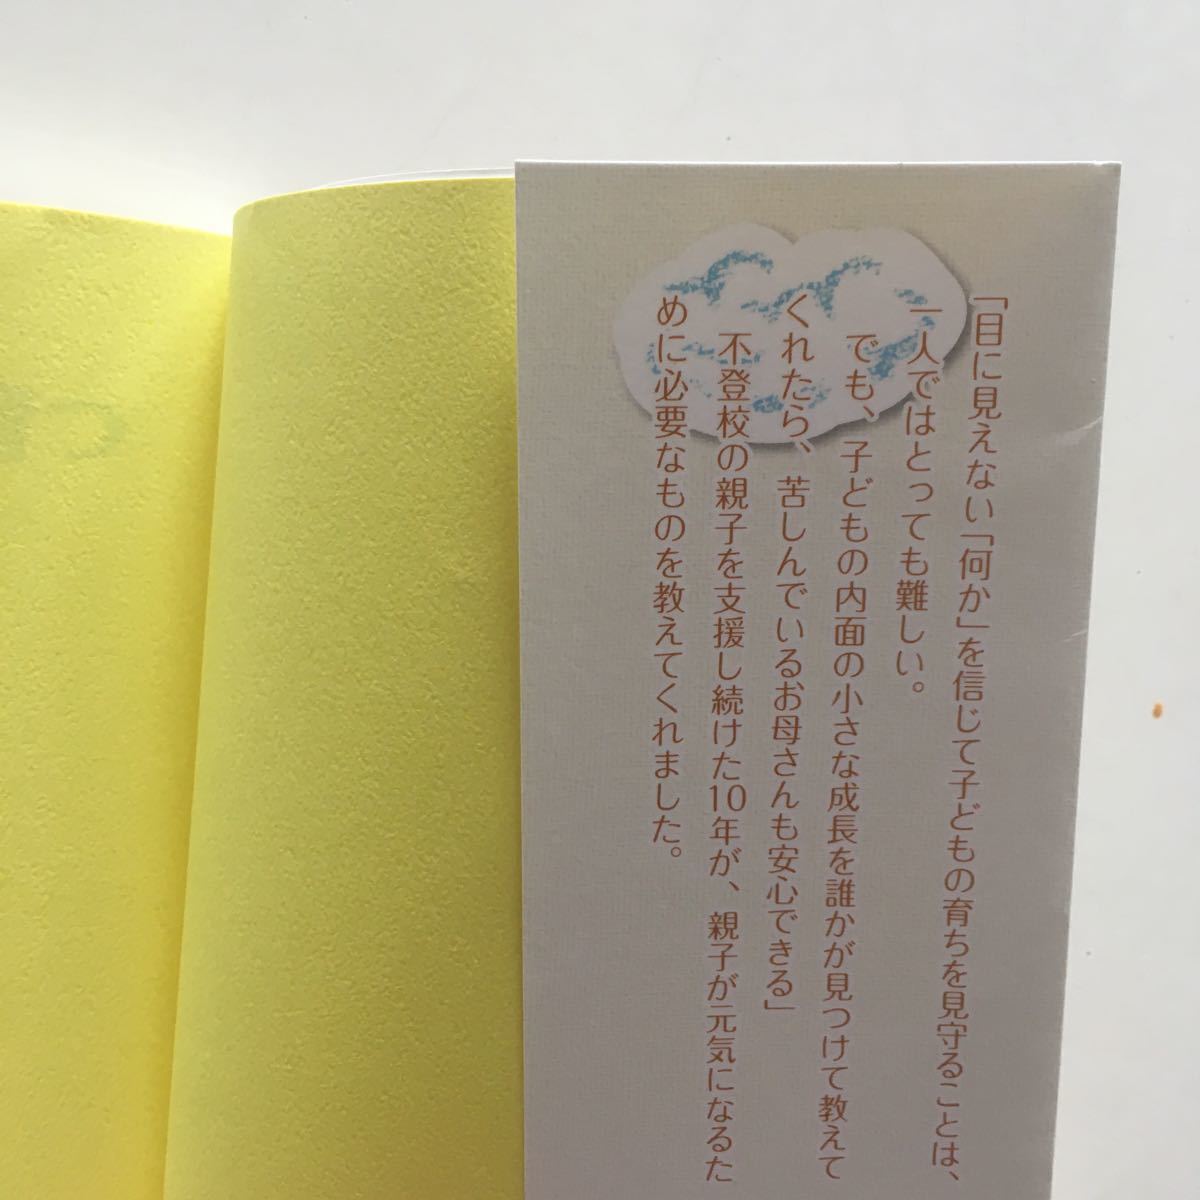 「目に見えない「何か」を信じて子どもの育ちを見守ることは、
一人ではとっても難しい。
でも、子どもの内面の小さな成長を誰かが見つけて教えて
くれたら、苦しんでいるお母さんも安心できる」
不登校の親子を支援し続けた10年が、親子が元気になるた
めに必要なものを教えてくれました。